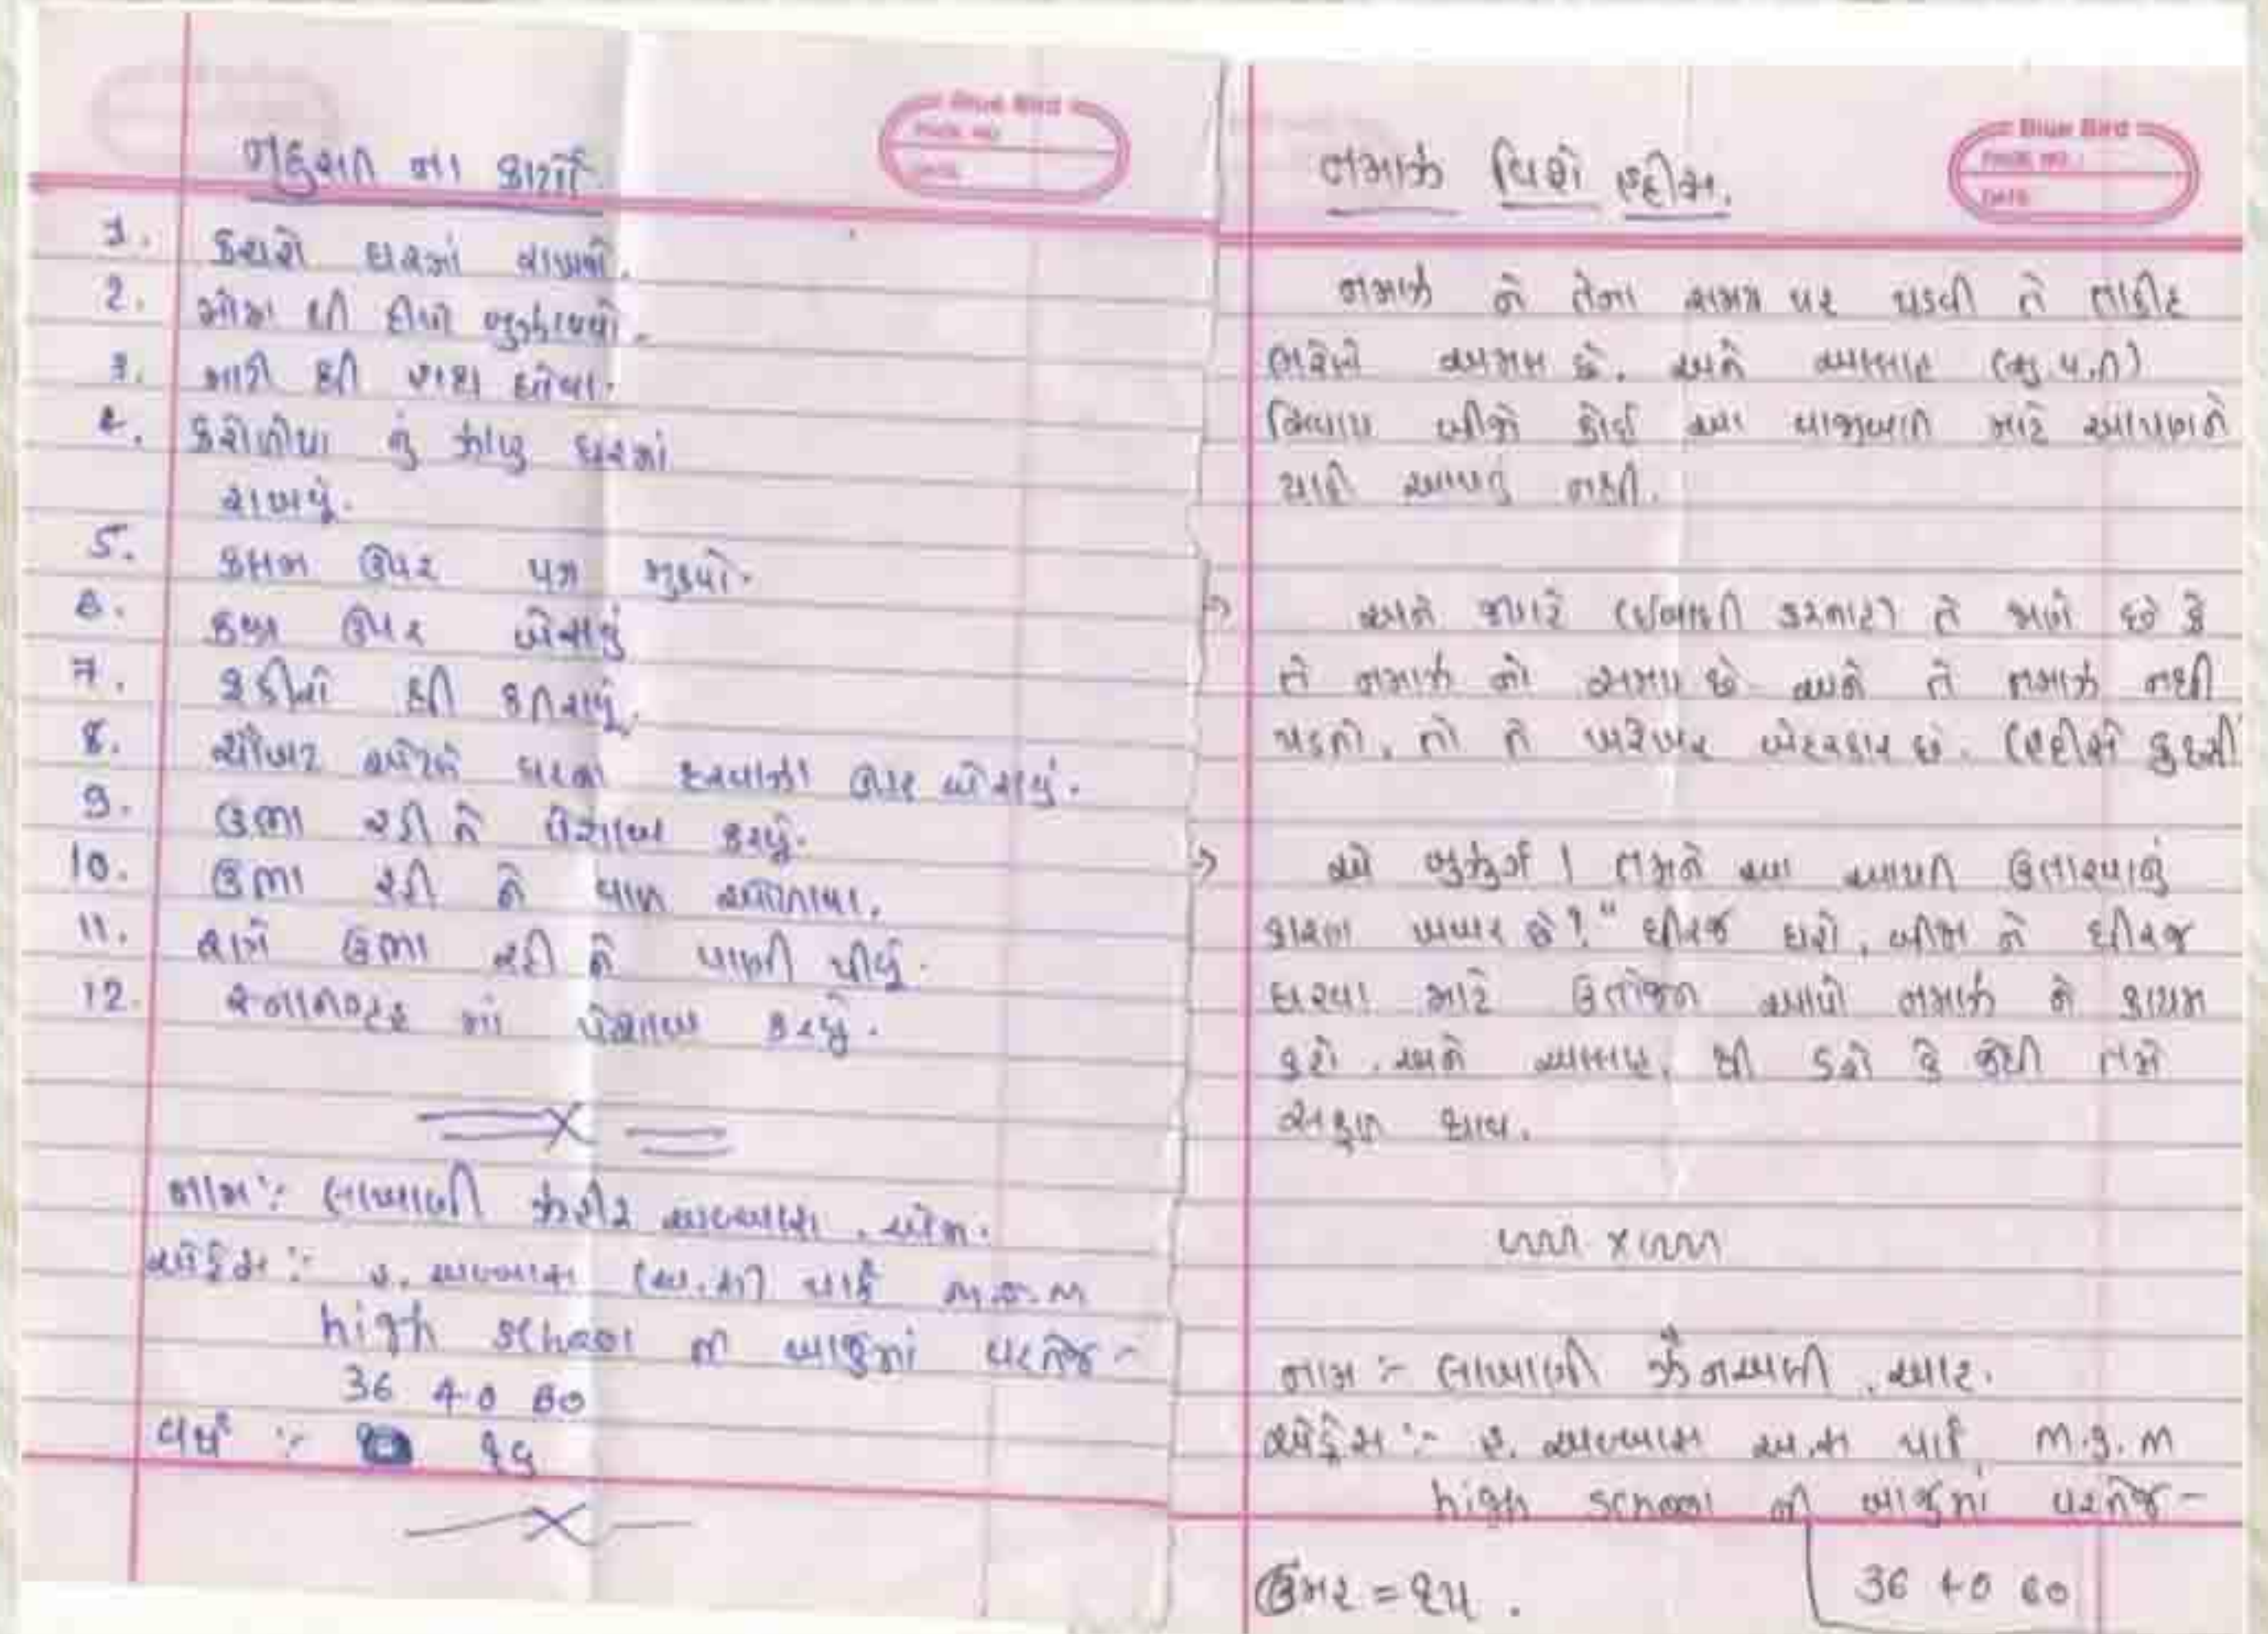 નહુસત ના કાર્યો
Blue Bird
PAGE NO.
DATE
1. કચરો ઘરમાં રાખવો.
2. મોઢા થી દીવો બુઝાવવો.
3. માટી થી હાથ ધોવા.
૪. કરોળીયા નું જાળુ ઘરમાં
રાખવું.
5. કલમ ઉપર પગ મુકવો.
6. કબ્ર ઉપર બેસવું
7. થી કતરાવું.
8. ઘરના દરવાજા ઉપર બેસવું.
9. ઉભા રહી ને પેશાબ કરવું.
10. ઉભા રહી ને વાળ ઓળાવા.
11. રાત્રે ઉભા રહી ને પાણી પીવું.
12. સ્નાનગૃહ માં પેશાબ કરવું.
નામ :- લાખાણી અબ્બાસ . એમ.
એડ્રેસ :- હ. અબ્બાસ (અ.સ) પાર્ક M.G.M
high school ની બાજુમાં પરતેજ -
36 40 60
વર્ષ :- ૧૬
નમાઝ વિશે હદીસ.
Blue Bird
PAGE NO. :
DATE
નમાઝ ને તેના સમય પર પડવી તે તાકીદ
ભરેલો અમલ છે. અને અલ્લાહ (સુ.વ.ત)
સિવાય બીજો કોઈ આ બાબત માટે આપણને
આપતું નથી.
અને જ્યારે (ઈબાદત કરનાર) તે જાણે છે કે
તે નમાઝ નો સમય છે અને તે નમાઝ નથી
પડતો, તો તે ખરેખર બેદરકાર છે. (હદીસે કુદસી
એ બુઝુર્ગ ! તમને આ આયત ઉતારવાનું
કારણ ખબર છે?" ધીરજ ધરો, બીજા ને ધીરજ
ધરવા માટે ઉત્તેજન આપો નમાઝ ને કાયમ
કરો . અને અલ્લાહ થી ડરો કે જેથી તમે
સફળ થાવ.
નામ :- લાખાણી ઝૈનઅલી . આર.
એડ્રેસ :- હ. અબ્બાસ અ.સ પાર્ક M.G.M
high school ની બાજુમાં પરતેજ -
ઉંમર = ૧૫ .
36 40 60